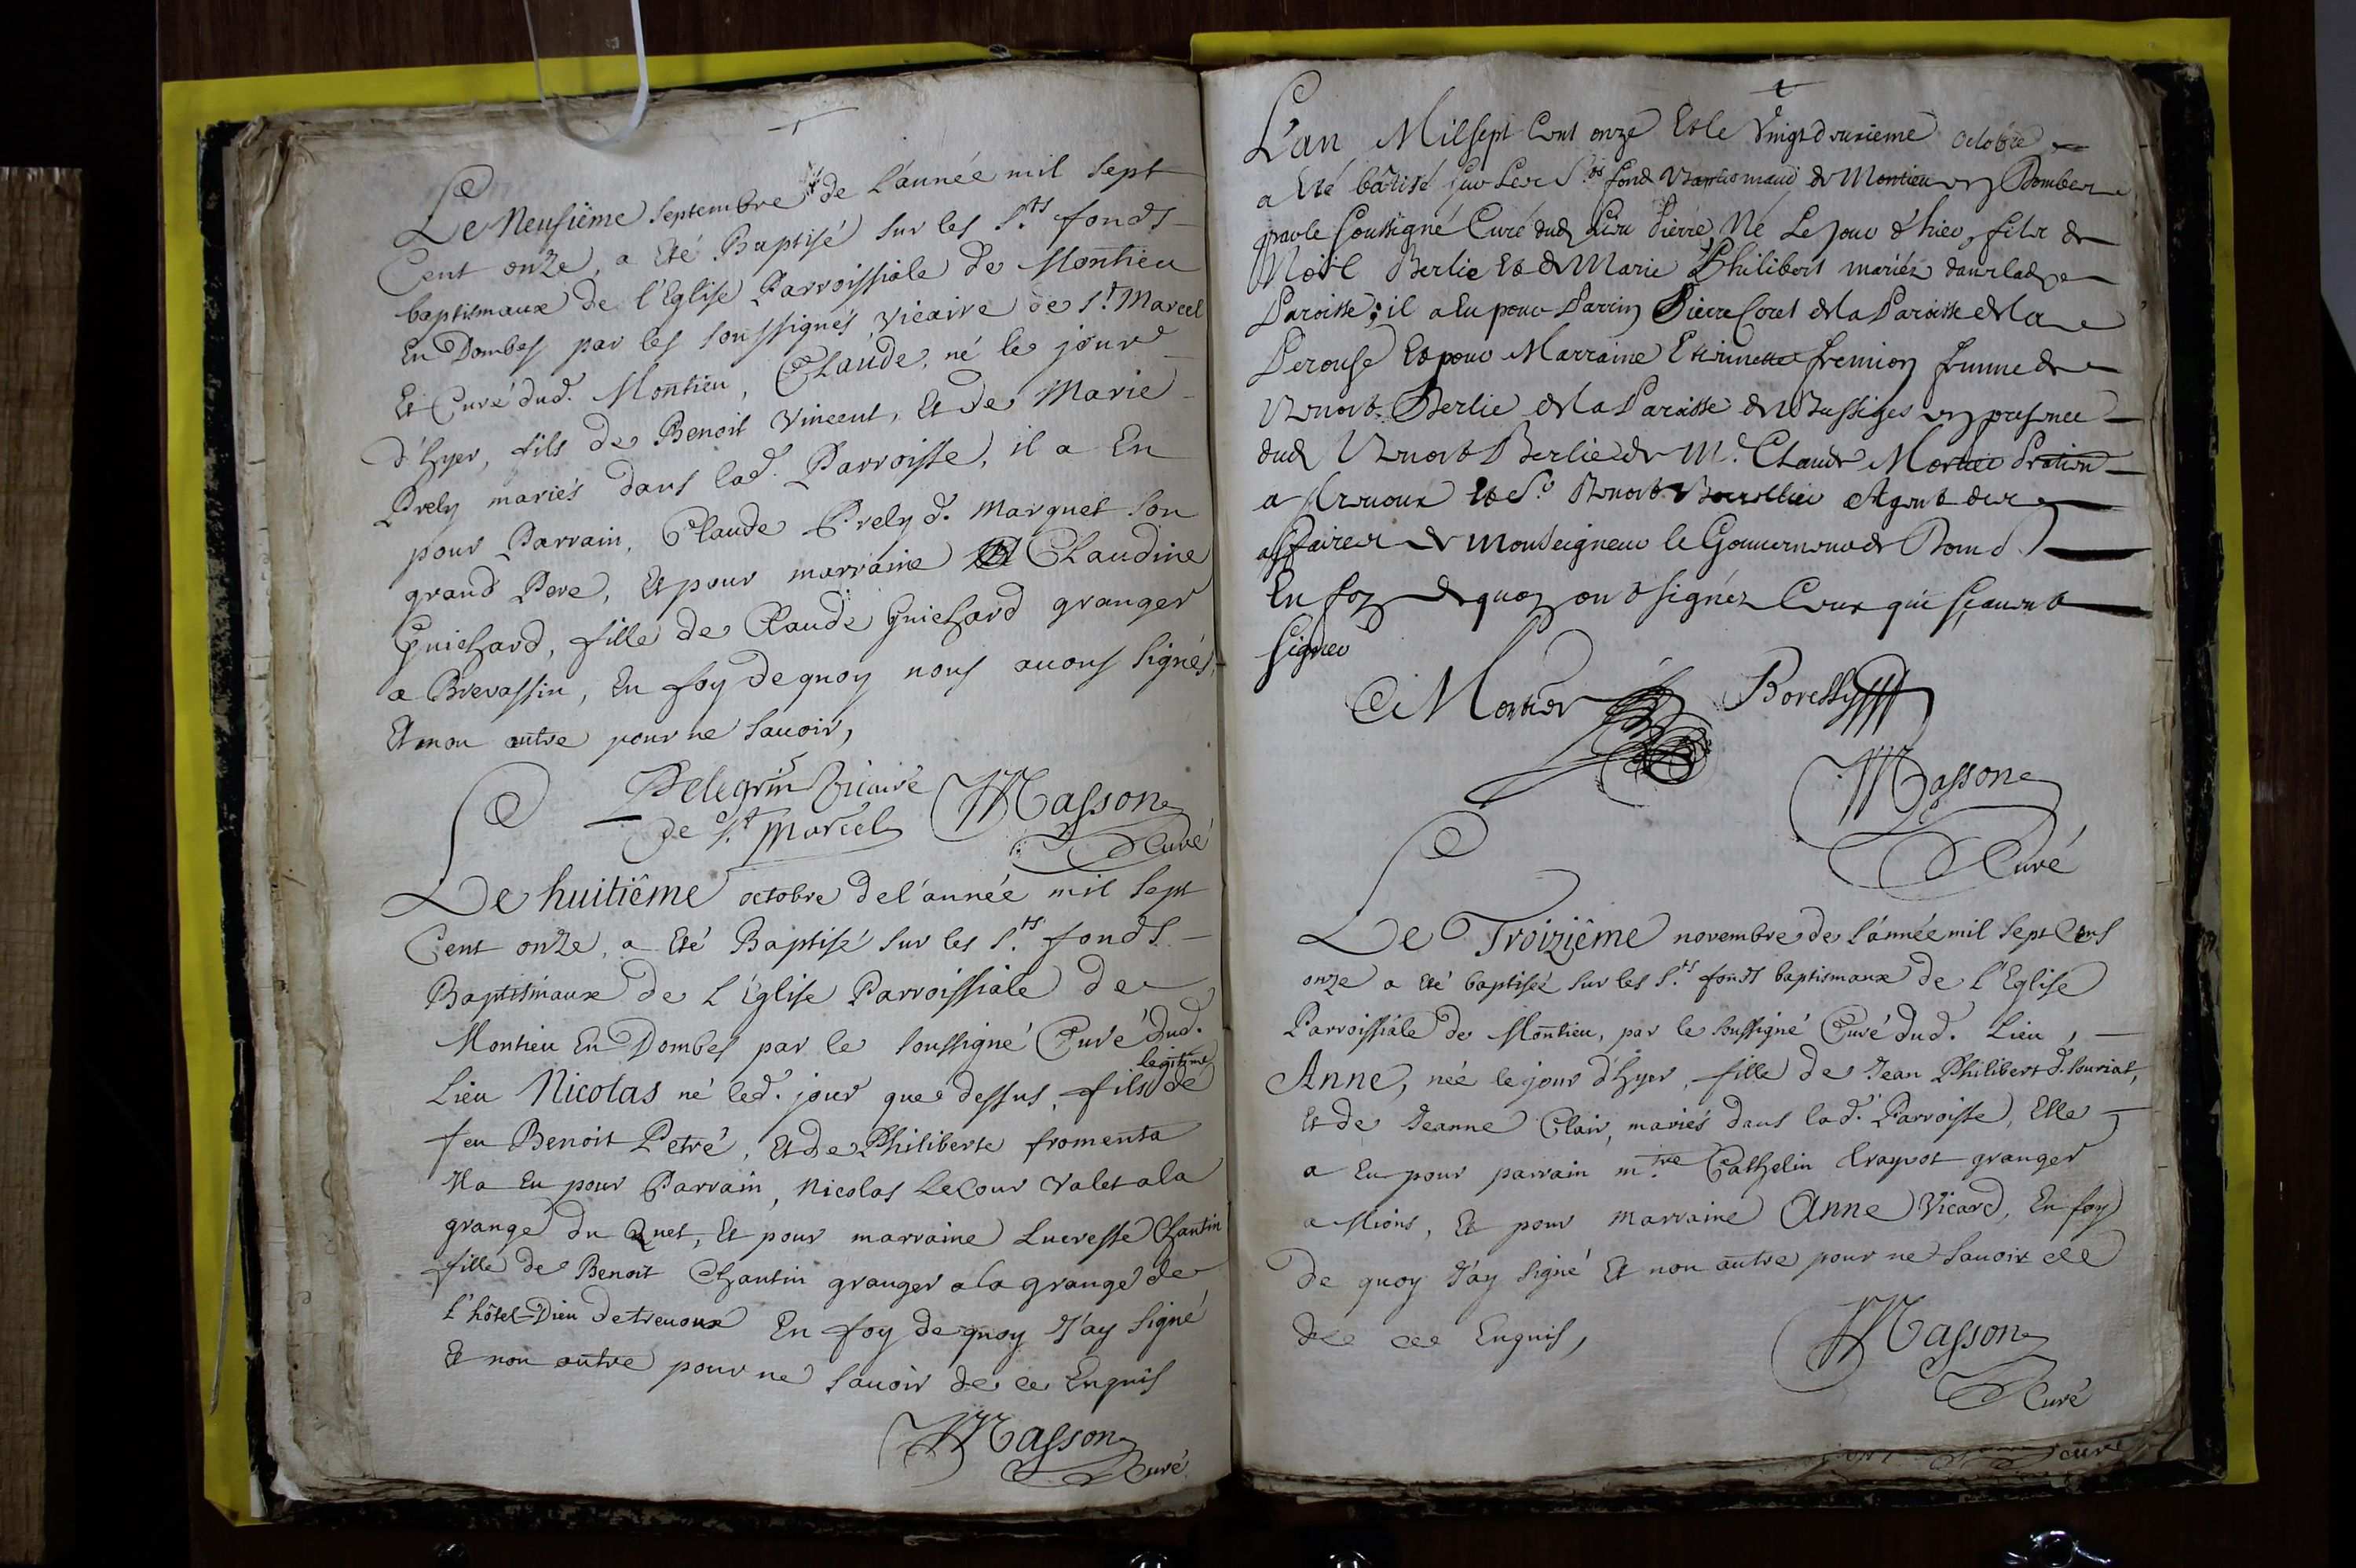 Le Neusiême septembre de L'année mil sept
Cent onze, a Eté Baptisé sur les S.ts fonds
baptismaux de l'Eglise Parroissiale de Montieu
En Dombes par les soussignés vicaire de S.t Marcel
Et Curé dud. Montieu, CLaude, né le jour
d'hyer, fils de Benoit Vincent, Et de Marie
Prely mariés dans lad. Parroisse, il a Eu
pour Parrain, Claude Prely d. Marquet son
grand Pere, Et pour marraine CLaudine
Guichard, fille de Claude Guichard granger
a Brevassin, En foy de quoy nous auons signés,
Et non autre pour ne sauoir,
Pelegrin Vicaire
de S.t Marcel
Masson
Curé
Le huitiême octobre de l'année mil sept
Cent onze, a Eté Baptisé sur les S.ts fonds
Baptismaux de L'Eglise Parroissiale de
Montieu En Dombes par le soussigné Curé dud.
Lieu Nicolas né led. jour que dessus, fils legitime de
feu Benoit Petré, Et de Philiberte fromenta
Il a Eu pour Parrain, Nicolas LeCour valet a la
grange du Quet, Et pour marraine Lucresse Chantin
fille de Benoit Chantin granger a la grange de
l'hôtel-Dieu de treuoux En foy de quoy J'ay signé
Et non autre pour ne sauoir de ce Enquis
Masson
Curé
L'an Mil sept Cent onze Et le Vingt deuxieme octobre
a Eté bâtisé sur les S.ts fond Baptismaux de Montieu en Dombes
par le soussigné Curé dud. Lieu Pierre, Né Le jour d'hier, fils de
Noël Berlie Et de Marie Philibert mariés dans lad.
Paroisse; il a Eu pour Parrin Pierre Coret de la Paroisse de la
Perouse Et pour Marraine Etiennette fremion femme de
Benoit Berlie de la Paroisse de Bussiges en presence
dud. Benoit Berlie et de M.e Claude Mortier Praticien
a Treuoux Et S.r Benoit Agent des
affaires de Monseigneur le Gouverneur de Domb.
En foy de quoy ont signéz Ceux qui sçauent
signer
C Mortier
Masson
Curé
Le Troiziême novembre de l'année mil sept Cens
onze a Eté baptisée sur les S.ts fonds baptismaux de l'Eglise
Parroissiale de Montieu, par le soussigné Curé dud. Lieu,
Anne, née le jour d'hyer, fille de Jean Philibert d. Souriat,
Et de Jeanne Clair, mariés dans lad. Parroisse, Elle
a Eu pour parrain m.tre Cathelin Crayvot granger
a Mions, Et pour marraine Anne Vicard, En foy
de quoy J'ay signé Et non autre pour ne sauoir
de ce Enquis,
Masson
Curé
curé